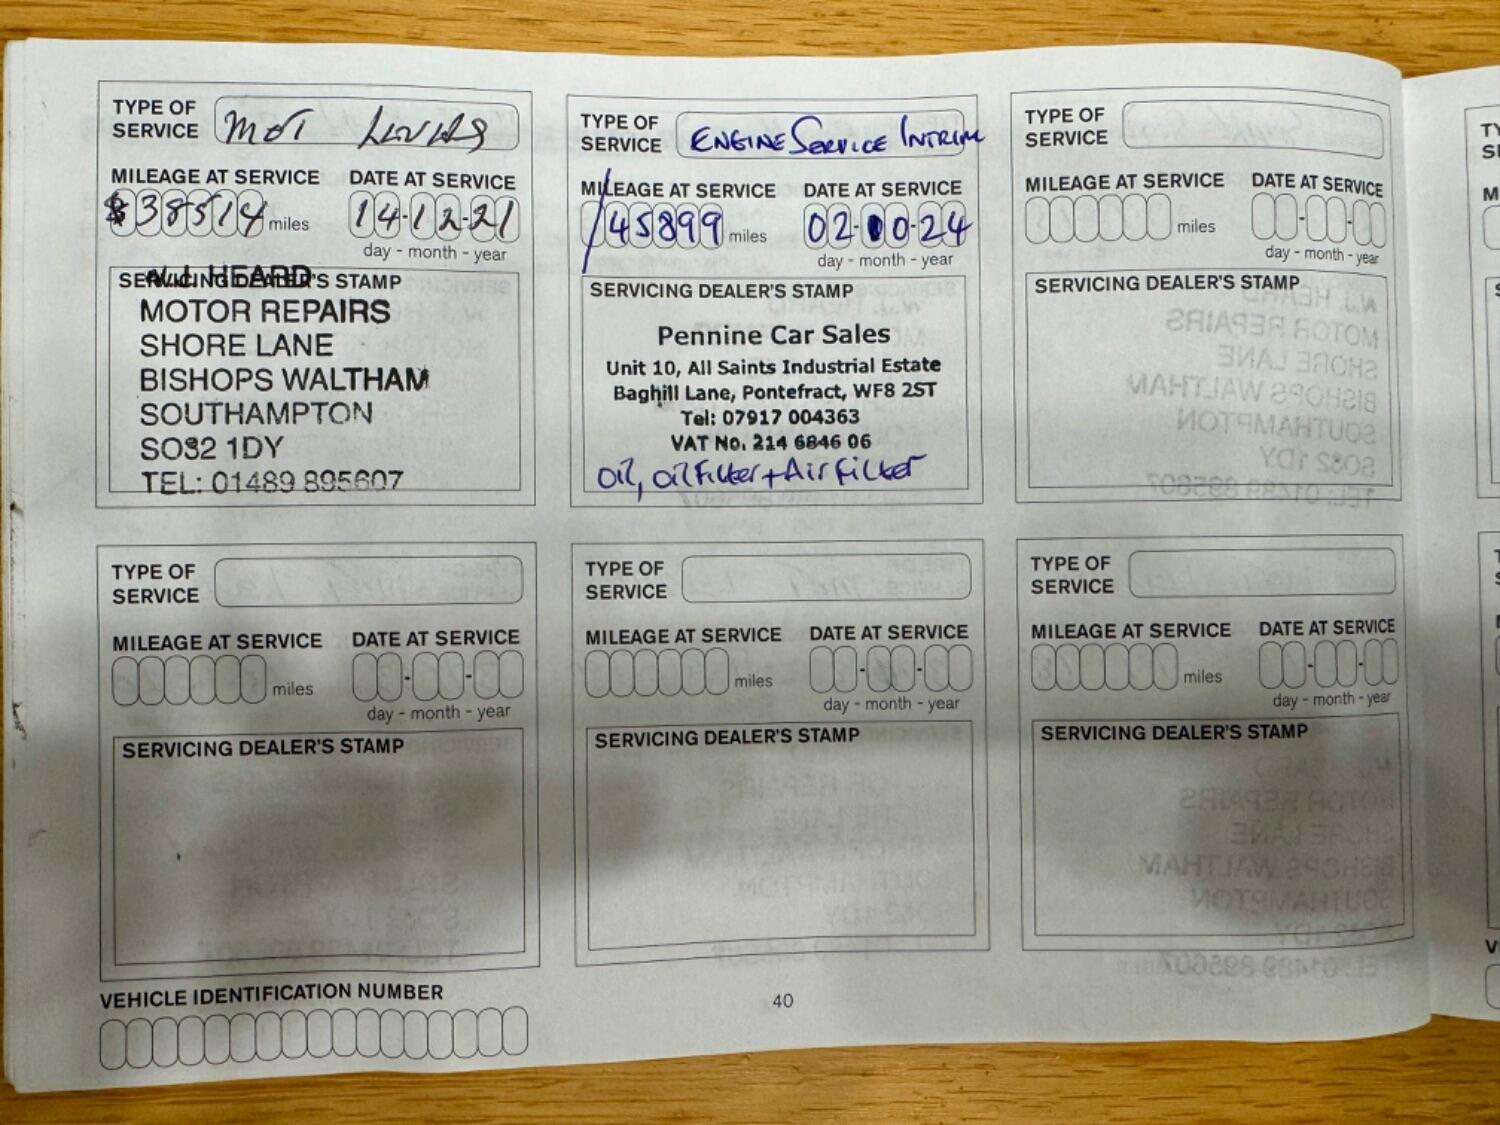 TYPE OF
SERVICE MOT
MILEAGE AT SERVICE DATE AT SERVICE
38514 miles 14-12-21
day - month - year
SERVICING DEALER'S STAMP
N.J. HEARD
MOTOR REPAIRS
SHORE LANE
BISHOPS WALTHAM
SOUTHAMPTON
SO32 1DY
TEL: 01489 895607
TYPE OF
SERVICE ENGINE SERVICE INTRIM
MILEAGE AT SERVICE DATE AT SERVICE
/45899 miles 02-10-24
day - month - year
SERVICING DEALER'S STAMP
Pennine Car Sales
Unit 10, All Saints Industrial Estate
Baghill Lane, Pontefract, WF8 2ST
Tel: 07917 004363
VAT No. 214 6846 06
Oil, Oil Filter + Air Filter
TYPE OF
SERVICE
MILEAGE AT SERVICE DATE AT SERVICE
miles
day - month - year
SERVICING DEALER'S STAMP
TYPE OF
SERVICE
MILEAGE AT SERVICE DATE AT SERVICE
miles
day - month - year
SERVICING DEALER'S STAMP
TYPE OF
SERVICE
MILEAGE AT SERVICE DATE AT SERVICE
miles
day - month - year
SERVICING DEALER'S STAMP
TYPE OF
SERVICE
MILEAGE AT SERVICE DATE AT SERVICE
miles
day - month - year
SERVICING DEALER'S STAMP
VEHICLE IDENTIFICATION NUMBER
40